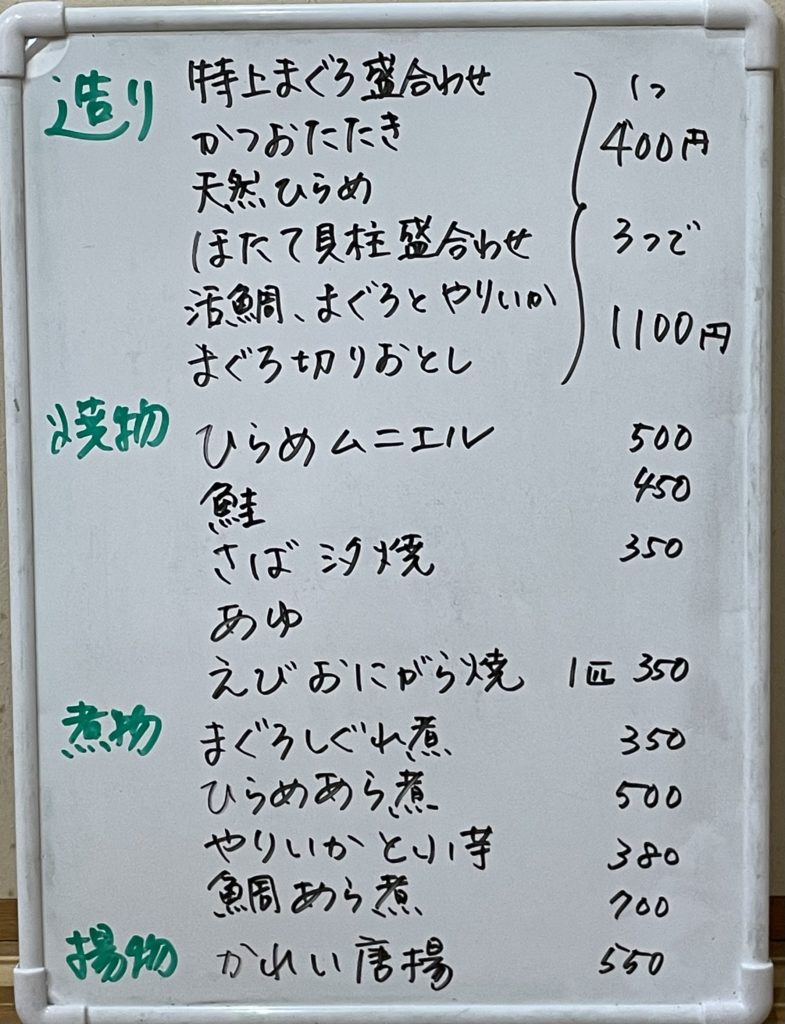 造り 特上まぐろ盛合わせ 1つ
かつおたたき 400円
天然ひらめ
ほたて貝柱盛合わせ 3つで
活鯛、まぐろとやりいか 1100円
まぐろ切りおとし
焼物 ひらめムニエル 500
鮭 450
さば汐焼 350
あゆ
えびおにがら焼 1匹 350
煮物 まぐろしぐれ煮 350
ひらめあら煮 500
やりいかと小芋 380
鯛あら煮 700
揚物 かれい唐揚 550